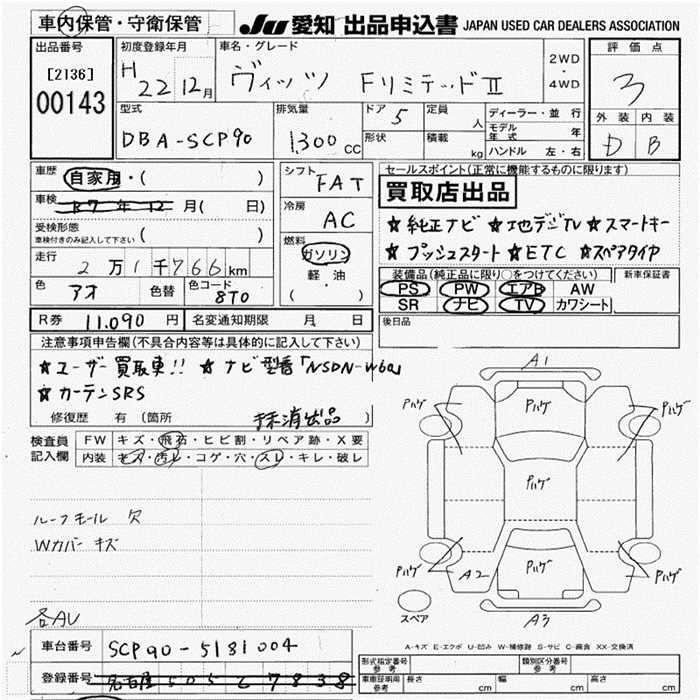 車内保管・守衛保管
JU 愛知 出品申込書 JAPAN USED CAR DEALERS ASSOCIATION
出品番号
[2136]
00143
初度登録年月
H 22 12月
車名・グレード
ヴィッツ FリミテッドⅡ
2WD
・
4WD
評価点
3
外装 内装
D B
型式
DBA-SCP90
排気量
1,300 CC
ドア 5
形状
定員 人
積載 kg
ディーラー・並行
モデル年式 年
ハンドル 左・右
車歴 自家用・( )
車検 R7年12月( 日)
受検形態
車検付きのみ記入して下さい ( )
走行 2万1千766km
色 アオ 色替 色コード 8T0
シフト FAT
冷房 AC
燃料
ガソリン
軽・油
( )
セールスポイント(正常に機能するものに限ります)
買取店出品
★純正ナビ ★地デジTV ★スマートキー
★プッシュスタート ★ETC ★スペアタイヤ
装備品(純正品に限り○をつけてください) 新車保証書
PS PW エアB AW
SR ナビ TV カワシート
後日品
R券 11,090 円 名変通知期限 月 日
注意事項申告欄(不具合内容等は具体的に記入して下さい)
★ユーザー買取車!! ★ナビ型番「NSDN-W60」
★カーテンSRS
修復歴 有 (箇所 抹消出品 )
検査員記入欄
FW キズ・飛石・ヒビ割・リペア跡・X要
内装 キズ・汚レ・コゲ・穴・スレ・キレ・破レ
ルーフモール 欠
Wカバー キズ
各AU
A1
パハゲ パハゲ パハゲ
パハゲ
パハゲ A2 パハゲ パハゲ
スペア
A3
A-キズ E-エクボ U-凹み W-補修跡 S-サビ C-腐食 XX-交換済
車台番号 SCP90-5181004
登録番号 名古屋 505 と 7838
型式指定番号 参考
類別区分番号 参考
車庫証明用 参考 長さ cm 幅 cm 高さ cm